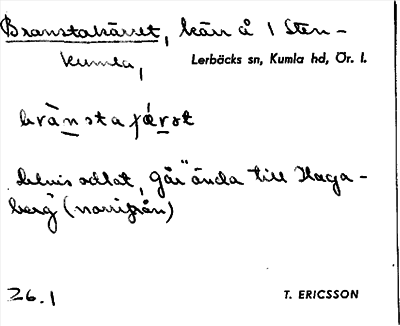 Branstakärret, kärr å 1 Sten-
kumla,
Lerbäcks sn, Kumla hd, Ör. l.
brä̱nstaꞙæ̱rət
delvis odlat, "går" ända till Haga-
berg (norrifrån)
26.1
T. ERICSSON